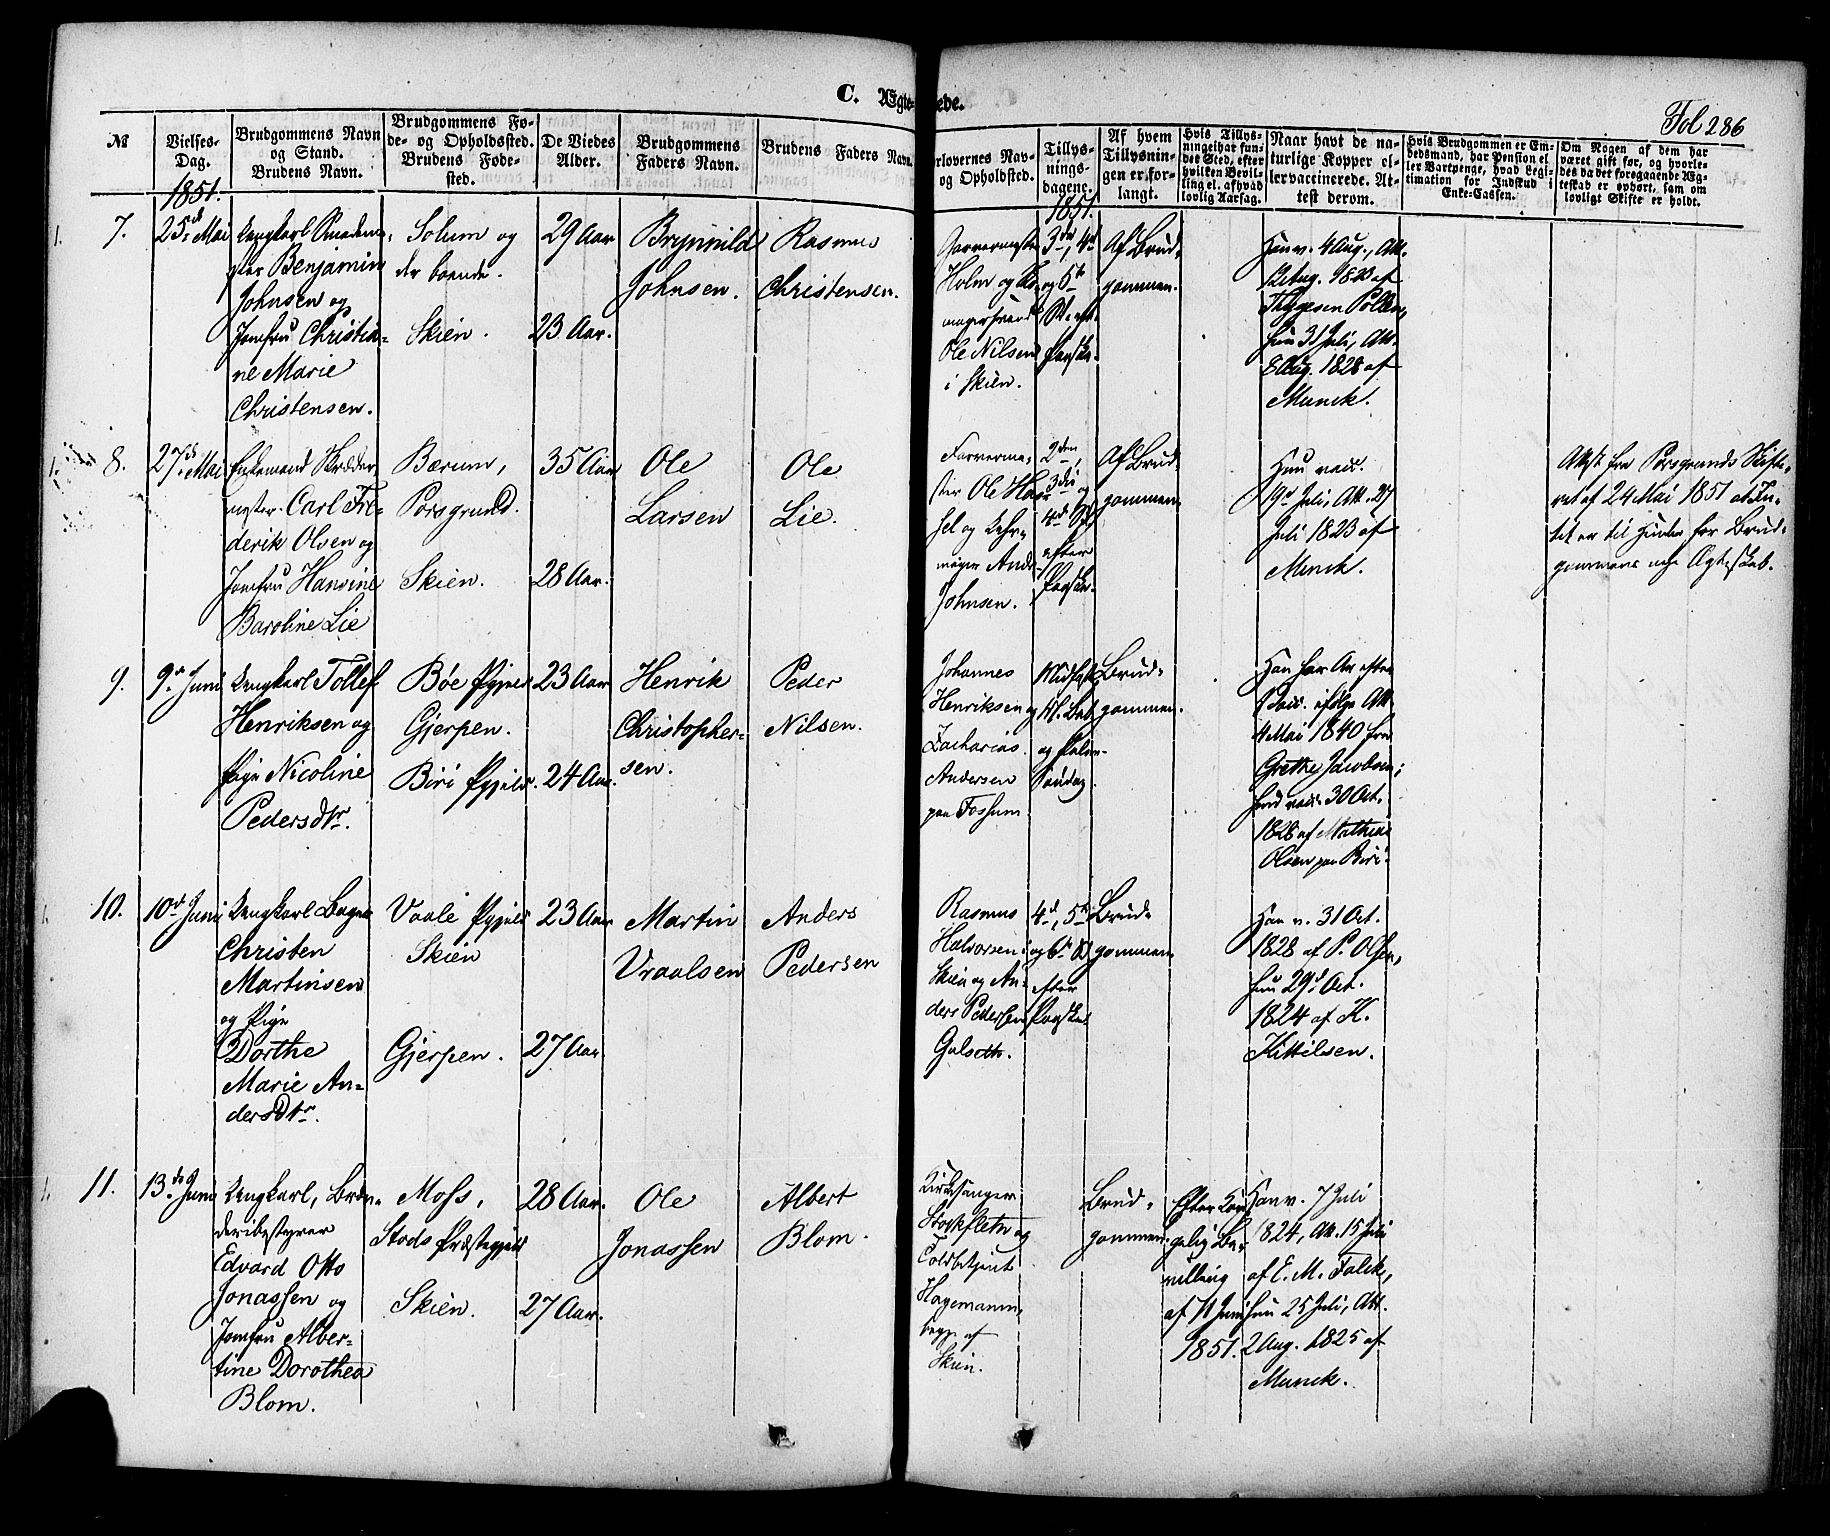 C. Ægte- ede.
Fol 286
№
Vielses-
Dag.
Brudgommens Navn
og Stand.
Brudens Navn.
Brudgommens Fø-
de- og Opholdssted.
Brudens Føde-
sted.
De Viedes
Alder.
Brudgommens
Faders Navn.
Brudens Faders Navn.
orlovernes Nav-
og Opholdsted.
Tillys-
nings-
dagene.
Af hvem
Tillysnin-
gen er for-
langt.
Hvis Tillys-
ning ei har fun-
det Sted, efter
hvilken Bevil-
ling el. af hvad
lovlig Aarsag.
Naar havt de na-
turlige Kopper el-
ler vaccinerede. At-
test derom.
Hvis Brudgommen er Em-
bedsmand, har Pension el-
ler Vartpenge, hvad Legi-
timation for Indskud i
Enke-Cassen.
Om Nogen af dem har
været gift før, og hvorle-
des da det foregaaende Æg-
teskab er ophørt, sam om
lovligt Skifte er holdt.
1851.
1851.
7.
25de Mai
Ungkarl
Benjamin
Johnsen og
Jomfru Christia-
ne Marie
Christensen.
Solum og
der boende.
Skien.
29 Aar
23 Aar.
Brynnild
Johnsen.
Rasmus
Christensen.
Garvermester
Holm og
Ole Nilsen
i Skien.
3de, 4de
og 5te
S. eft.
Paaske.
Af Brud-
gommen.
Han v. 4 Aug., Att.
12 Aug. 1823 af
Thygesen Possen,
hun 31 Juli, Att.
8 Aug. 1828 af
Munck.
8.
27de Mai
Enkemand Skræder-
mester Carl Fre-
derik Olsen og
Jomfru Hansine
Baroline Lie
Bærum,
Porsgrund.
Skien.
35 Aar
28 Aar.
Ole
Larsen
Ole
Lie.
Farverme-
ster Ole Has-
sel og
Ande
Johnsen.
2den,
3die og
4de S.
efter
Paaske.
Af Brud-
gommen
Hun vacc.
19de Juli, Att. 27
Juli 1823 af
Munck.
Attest fra Porsgrunds Skifte-
ret af 24 Mai 1851 at In-
tet er til Hinder for Brud-
gommens nye Ægteskab.
9.
9de Juni
Ungkarl Tollef
Henriksen og
Pige Nicoline
Pedersdtr.
Bøe Pgjeld
Gjerpen.
Biri Pgjeld.
23 Aar
24 Aar.
Henrik
Christopher-
sen.
Peder
Nilsen.
Johannes
Henriksen og
Zacharias
Andersen
paa Fossum
Midfaste,
M. Bab.
og Palme-
Søndag
Brud-
gommen.
Han har Ar efter
Vacc. ifølge Att.
4 Mai 1840 fra
Grethe Jacobsen;
hun vacc. 30 Oct.
1828 af Mathias
Olsen paa Biri.
10.
10de Juni
Ungkarl Bager
Christen
Martinsen
og Pige
Dorthe
Marie An-
dersdtr.
Vaale Pgjeld
Skien
Gjerpen.
23 Aar
27 Aar
Martin
Vraalsen
Anders
Pedersen
Rasmus
Halvorsen i
Skien og An-
ders Pedersen
Gulseth.
4de, 5te
og 6te S.
efter
Paaske
Brud-
gommen
Han v. 31 Oct.
1828 af P. Olsen,
hun 29de Oct.
1824 af K.
Kittilsen.
11.
13de Juni
Ungkarl, Bræn-
deribestyrer
Edvard Otto
Jonassen og
Jomfru Alber-
tine Dorothea
Blom.
Moss,
Stods Præstegjeld
Skien.
28 Aar.
27 Aar.
Ole
Jonassen
Albert
Blom.
Kirkesanger
Stockfleth og
Toldbetjent
Hagemann,
begge af
Skien.
Brud-
gommen
Efter Kon-
gelig Be-
villing
af 11 Juni
1851.
Han v. 7 Juli
1824, Att. 15 Juli
af E. M. Falck,
hun 25 Juli, Att.
2 Aug. 1825 af
Munck.